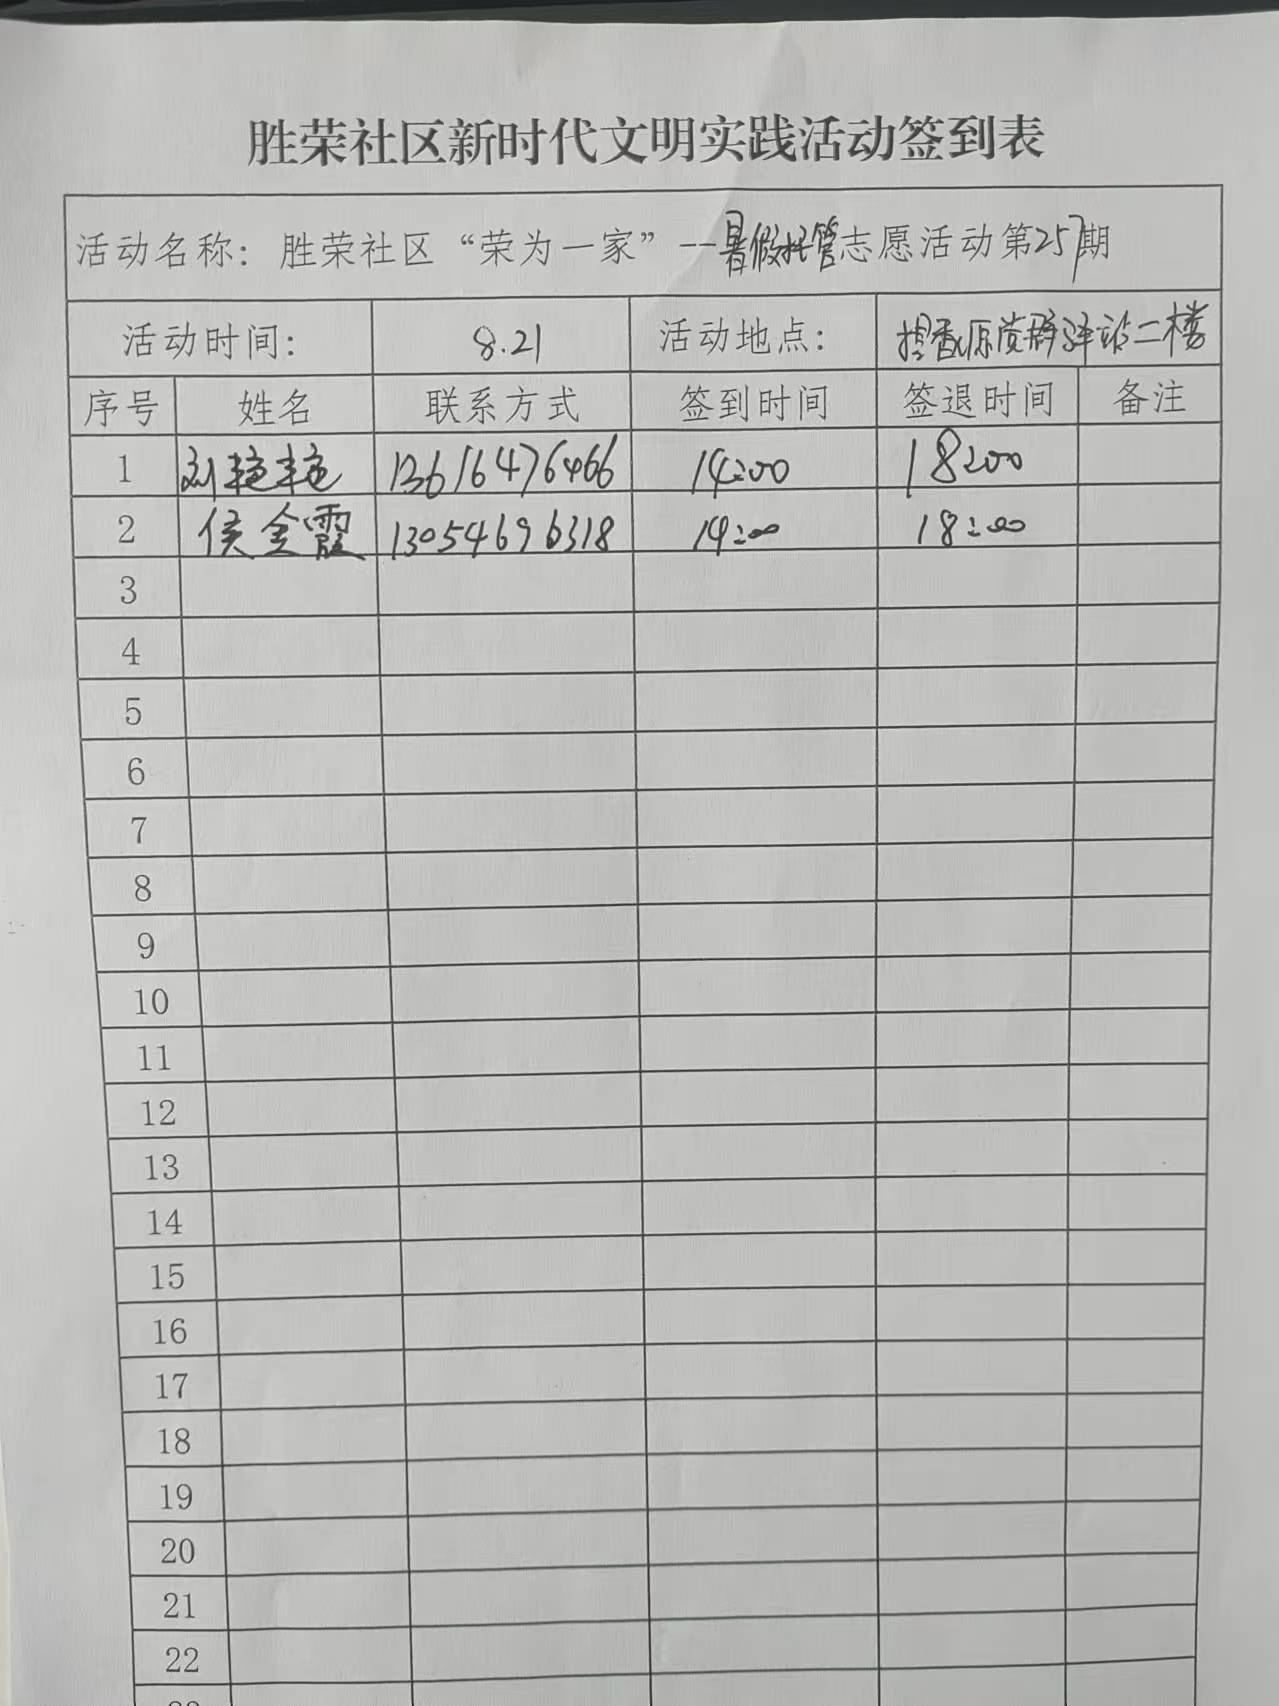 胜荣社区新时代文明实践活动签到表
活动名称：胜荣社区“荣为一家”--暑假托管志愿活动第257期
活动时间： 8.21 活动地点： 香源党群驿站二楼
序号 姓名 联系方式 签到时间 签退时间 备注
1 刘艳艳 13616476466 14:00 18:00
2 侯金霞 13054696318 14:00 18:00
3
4
5
6
7
8
9
10
11
12
13
14
15
16
17
18
19
20
21
22